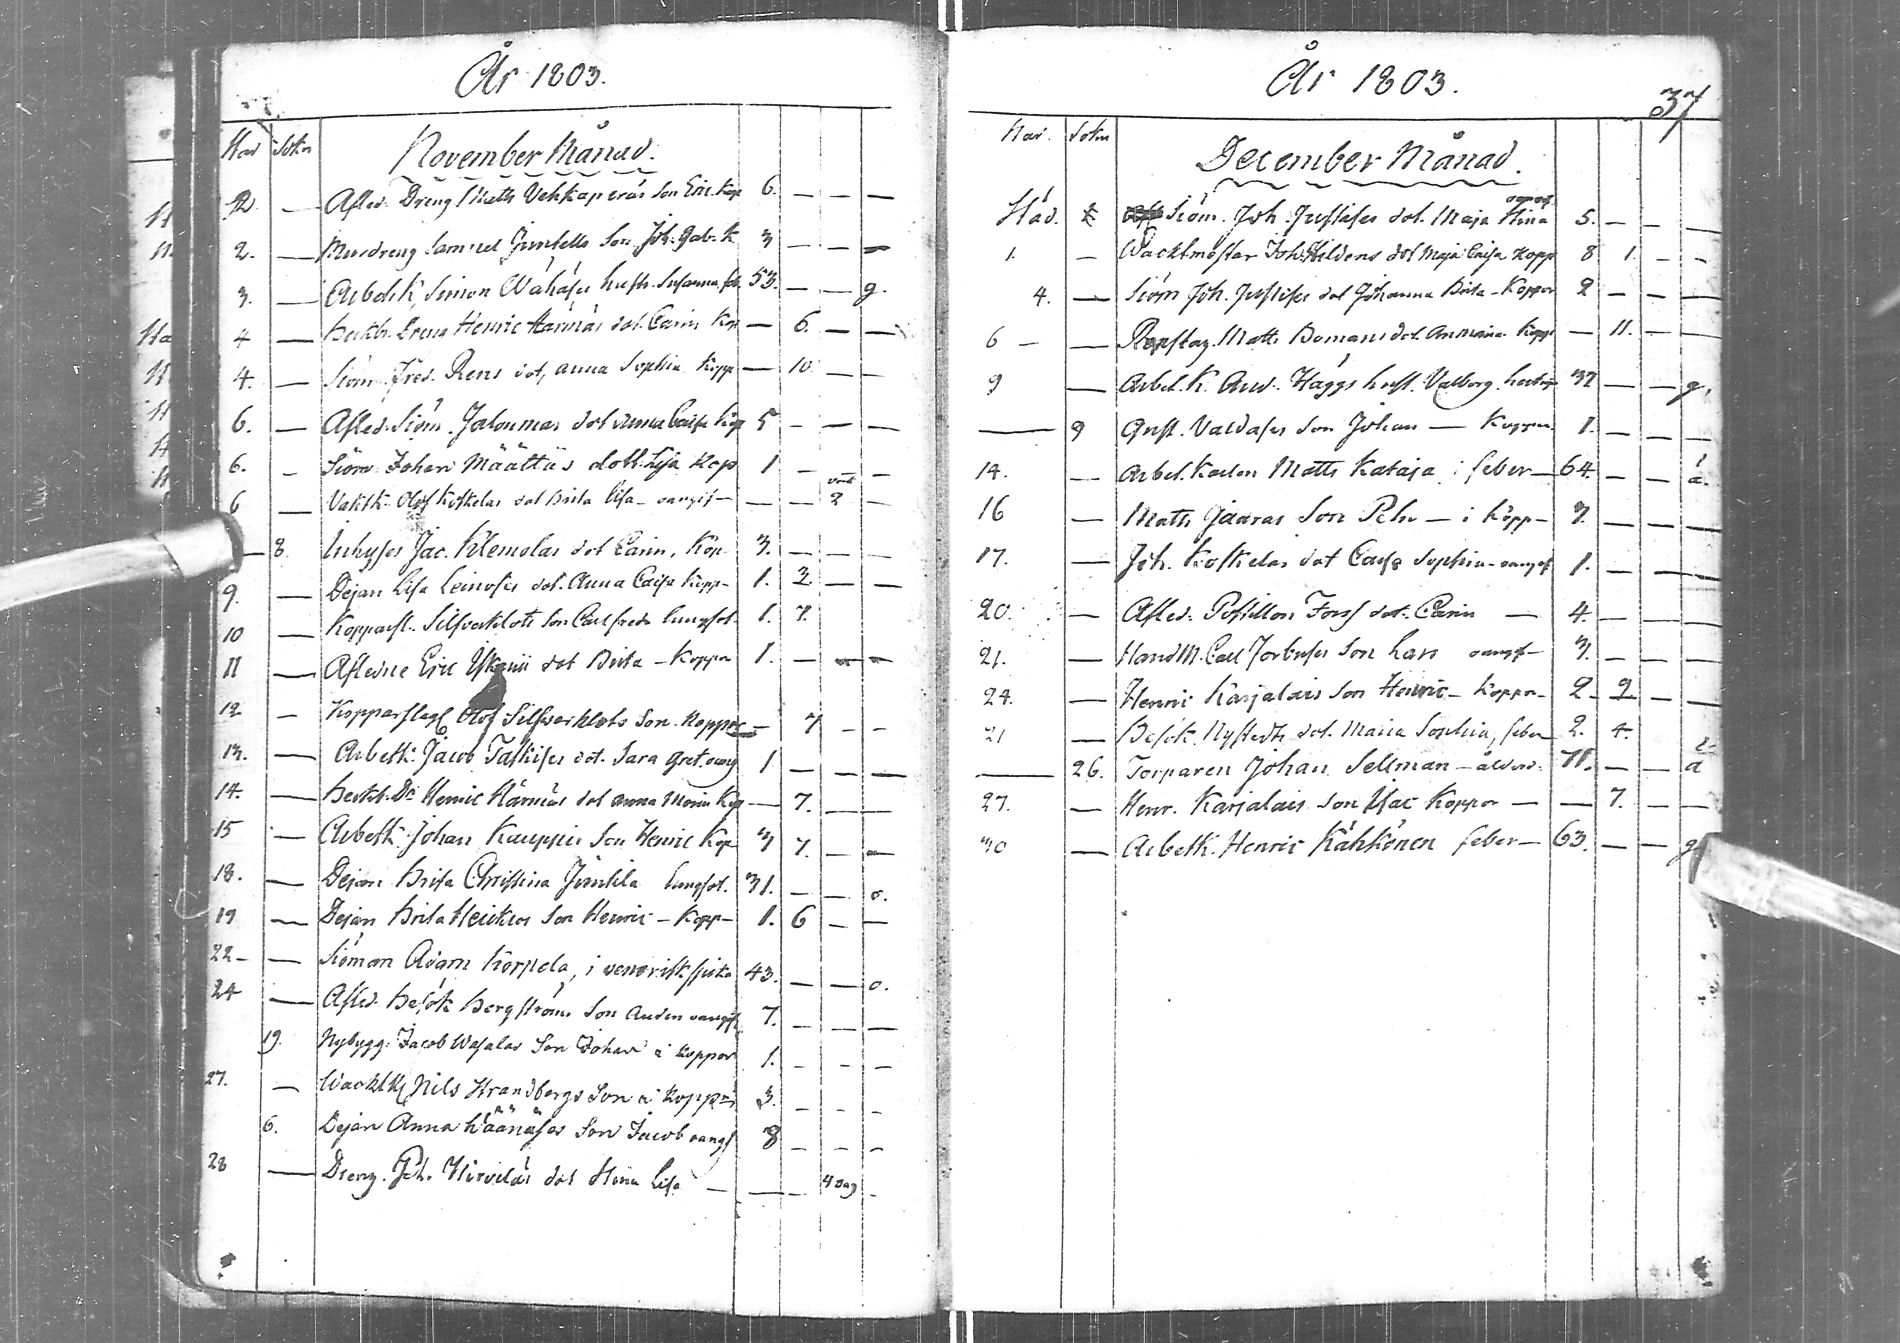 År 1803.
Stad Sokn November Månad.
2. — Afled. Dreng Matts Vehkaperäs Son Eric Kop 6. — — —
2. — Murdreng Samuel Junttella Son Joh. Gab. K 3 — — —
3. — Arbetsk. Simon Wähäses hustr. Susanna 53. — — g.
4 — Dreng Henric Hännäs dot. Carin Kop — 6. — —
4. — Siöm. Fred. Rens dot. Anna Sophia Kopp — 10 — —
6. — Afled. Siöm. Jalonmas dot Anna Caisa Kop 5 — — —
6. — Siöm Johan Määttäs dott. Lisa Kop 1 — — —
6 — Vaktk. Olof Koskelas dot Brita Lisa — oangif — — — 2 —
— 8. Inhyses Jac. Klemolas dot Carin, Kop 3. — — —
9. — Dejan Lisa Leinoses dot. Anna Caisa Kopp — 1. 2 — —
10 — Kopparsl. Silfverklots Son Carl Fredr. lungsot. 1. 7.
11 — Afledne Eric dot Brita — Koppor 1. — — —
12 — Kopparslag. Olof Silfverklots Son. Koppor — 7 — —
13. — Arbetk. Jacob Taskises dot. Sara Gret. oang 1 — — —
14. — Dr Henric Hännäs dot Anna Maria Kop — 7. — —
15 — Arbetk. Johan Kauppis Son Henric Kop 3 7. — —
18. — Dejan Brita Christina Junttila lungsot. 31. — — o.
19 — Dejan Brita Heickes Son Henric — Kopp — 1. 6 — —
22 — — Siöman Adam Korpela, i venerisk siuka 43. — — o.
24 — Afled. Besök. Bergströms Son Anders oangif 7. — — —
19. Nybygg. Jacob Wasalas Son Johan i Koppor 1. — — —
27. — Wacktk. Nils Strandbergs Son i Koppor 3. — — —
6. Dejan Anna Häänäses Son Jacob oangf 8 — — —
28 — Dreng. Joh. Hirveläs dot Stina Lisa — — — 4 dag —
År 1803.
37
Stad. Sokn December Månad.
Stad. Siöm. Joh. Justises dot. Maja Stina oangf 5. — — —
1. — Wacktmestar Joh. Hildens dot Maja Caisa Kopp 8 1. — —
4. — Siöm Joh. Justises dot Johanna Brita — Koppor 2 — — —
6 — — Repslag. Matts Bomans dot. Annaina Kopp — 11. — —
9 — Arbet. K. And. Häggs hust. Valborg 37 — — g.
— 9 Gust. Valdases Son Johan — Koppor 1. — — —
14. — Arbet. Karlen Matts Kataja i feber — 64. — — å.
16 — Matts Jaaras Son Pehr — i Kopp — 7. — — —
17. — Joh. Koskelas dot Caisa Sophia — oangf 1. — — —
20. — Afled. Postillon Forss dot. Carin — 4. — — —
21. — HandM. Carl Forbuses Son Lars oangf — 3. — — —
24. — Henric Karjalais Son Henric — Koppor — 2 — 9 — —
21 — Besök. Nystedts dot. Maria Sophia, feber 2. 4. —
— 26. Torparen Johan Sellman — ålderd. 71. — — å
27. — Henr. Karjalais Son Isac Koppor — — 7. — —
30 — Arbetk. Henric Kähkönen feber — 63. — — g.